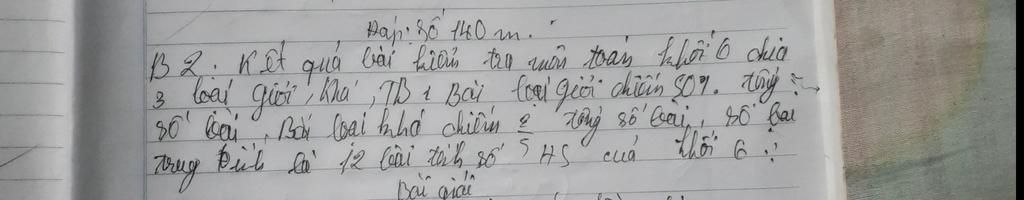 Đáp số 140 m.
B 2. Kết quả bài kiểm tra môn toán khối 6 chia
3 loại giỏi, khá, TB. Bài loại giỏi chiếm 50%. tổng
số bài, Bài loại khá chiếm 2/5 tổng số bài, số bài
trung bình là 12 bài tính số HS của khối 6 ?
Bài giải